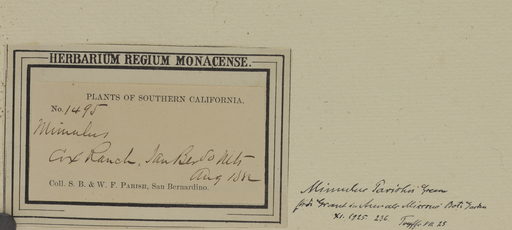 HERBARIUM REGIUM MONACENSE.
PLANTS OF SOUTHERN CALIFORNIA.
No. 1495
Mimulus
Cox Ranch, San Ber'do Mts
Aug 1882
Coll. S. B. & W. F. PARISH, San Bernardino.
Mimulus Parishii Green
fide Grant in Annals Missouri Bot. Garden
XI. 1925. 236.